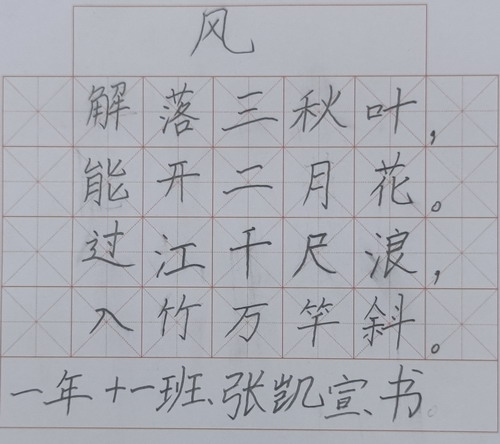 风
解落三秋叶,
能开二月花。
过江千尺浪,
入竹万竿斜。
一年十一班、张凯宣、书。